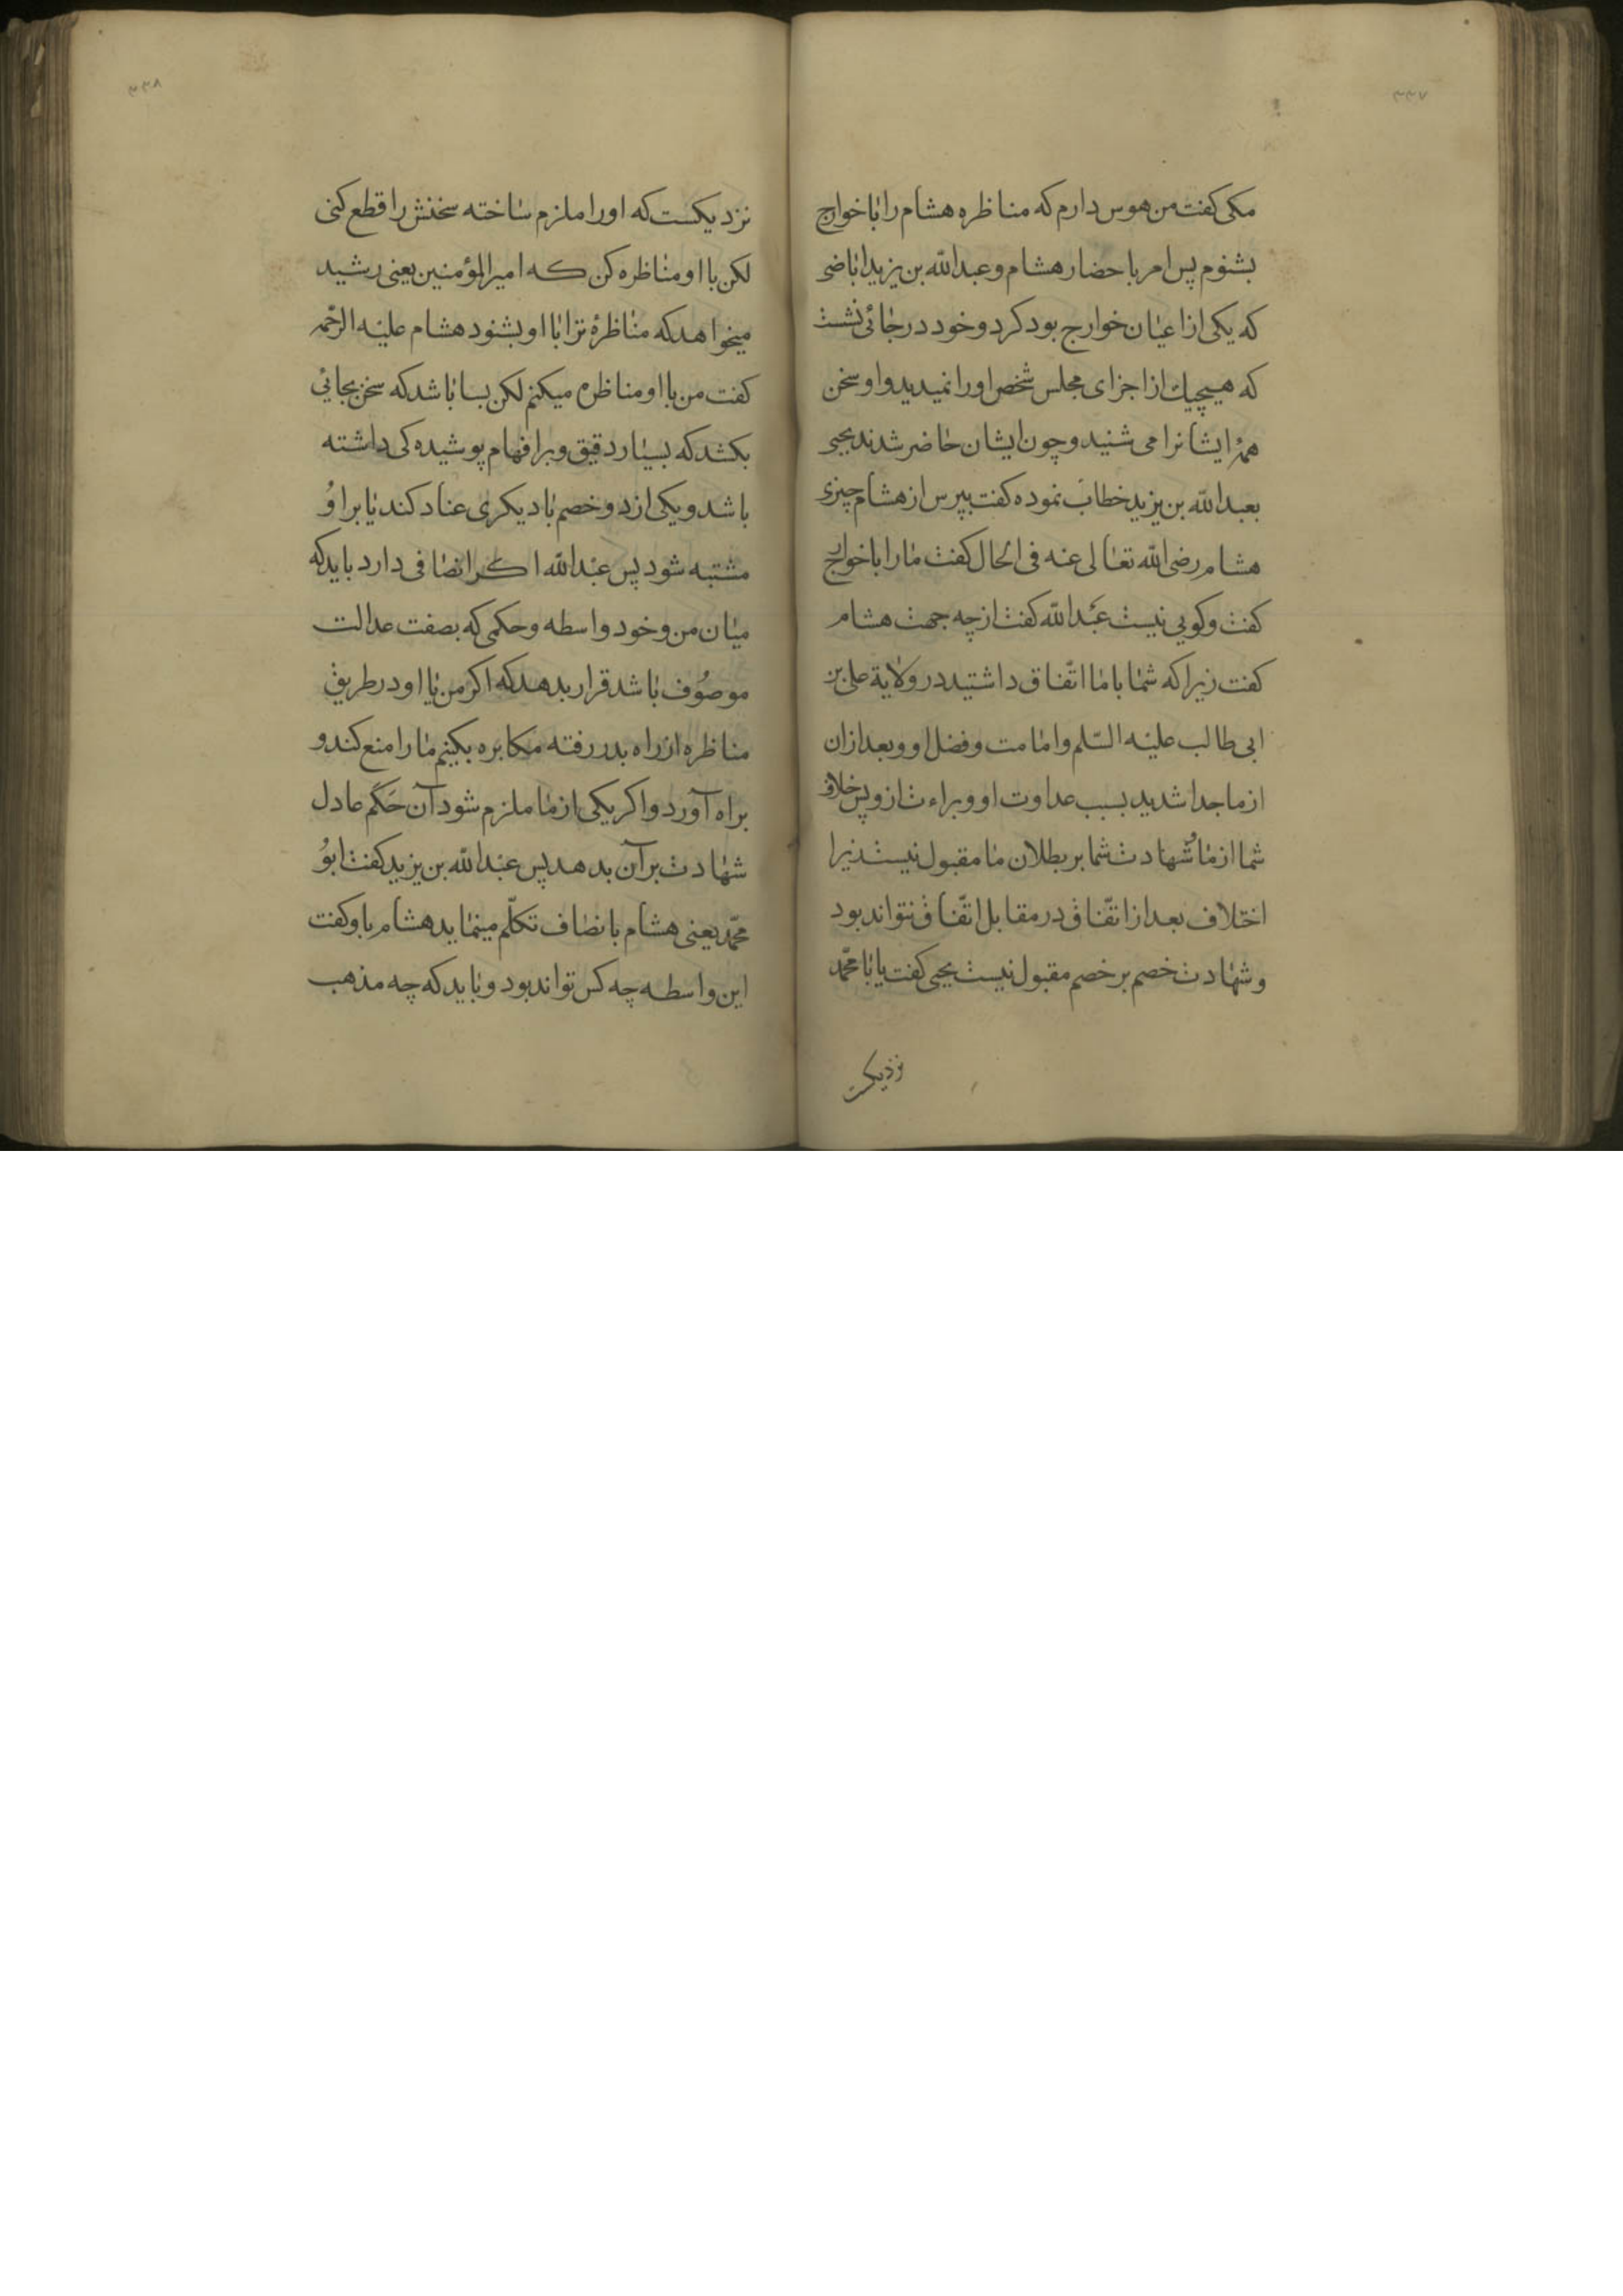 ۳۳۷
مکی کفت من هوس دارم که مناظره هشام را با خوارج
بشنوم پس امر باحضار هشام و عبدالله بن یزید اباضی
که یکی از اعیان خوارج بود کرد و خود در جائی نشست
که هیچیک از اجزای مجلس شخص او را نمیدید و او سخن
همۀ ایشانرا می شنید و چون ایشان حاضر شدند یحیی
بعبدالله بن یزید خطاب نموده کفت بپرس از هشام چیزی
هشام رضی الله تعالی عنه فی الحال کفت ما را با خوارج
کفت و کویی نیست عبدالله کفت از چه جهت هشام
کفت زیرا که شما با ما اتّفاق داشتید در ولایة علی بن
ابی طالب علیه السّلم و امامت و فضل او و بعد از ان
از ما جدا شدید بسبب عداوت او و براءت از و پس خلاف
شما از ما و شهادت شما بر بطلان ما مقبول نیست زیرا
اختلاف بعد از اتّفاق در مقابل اتّفاق نتواند بود
و شهادت خصم بر خصم مقبول نیست یحیی کفت یا با محمّد
نزدیکست
۳۳۸
نزدیکست که او را ملزم ساخته سخنش را قطع کنی
لکن با او مناظره کن که امیر المؤمنین یعنی رشید
میخواهد که مناظرۀ ترا با او بشنود هشام علیه الرّحمه
کفت من با او مناظره میکنم لکن بسا باشد که سخن بجائی
بکشد که بسیار دقیق و بر افهام پوشیدکی داشته
باشد و یکی از دو خصم با دیکری عناد کند یا بر او
مشتبه شود پس عبدالله اکر انصافی دارد باید که
میان من و خود واسطه و حکمی که بصفت عدالت
موصوف باشد قرار بدهد که اکر من یا او در طریق
مناظره از راه بدر رفته مکابره بکنیم ما را منع کند و
براه آورد و اکر یکی از ما ملزم شود آن حَکَم عادل
شهادت بر آن بدهد پس عبدالله بن یزید کفت ابو
محمّد یعنی هشام بانصاف تکلّم مینماید هشام باو کفت
این واسطه چه کس تواند بود و باید که چه مذهب